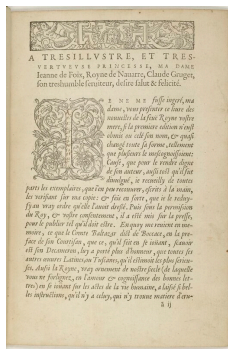 A TRESILLVSTRE, ET TRES-
VERTVEVSE PRINCESSE, MA DAME
Ieanne de Foix, Royne de Nauarre, Claude Gruget,
son treshumble seruiteur, desire salut & felicité.
IE NE ME fusse ingeré, ma
dame, vous presenter ce liure des
nouuelles de la feuë Royne vostre
mere, si la premiere edition n'eust
obmis ou celé son nom, & quasi
changé toute sa forme, tellement
que plusieurs le mescognoissoient:
Cause, que pour le rendre digne
de son auteur, aussi tost qu'il fut
diuulgué, ie recueilly de toutes
parts les exemplaires, que i'en peu recouurer, escrits à la main,
les verifiant sur ma copie: & feis en sorte, que ie le redui-
sy au vray ordre qu'elle l'auoit dressé. Puis sous la permission
du Roy, & vostre consentement, il a esté mis sur la presse,
pour le publier tel qu'il doit estre. En quoy me reuient en me-
moire, ce que le Conte Baltazar dit de Bocace, en la pre-
face de son Courtisan, que ce, qu'il feit en se iouant, sçauoir
est son Decameron, luy a porté plus d'honneur, que toutes ses
autres œuures Latines ou Tuscanes, qu'il estimoit les plus serieu-
ses. Aussi la Royne, vray ornement de nostre siecle (de laquelle
vous ne forlignez, en l'amour & cognoissance des bonnes let-
tres) en se iouant sur les actes de la vie humaine, a laissé si bel-
les instructions, qu'il n'y a celuy, qui n'y trouue matiere d'eru-
ã ij